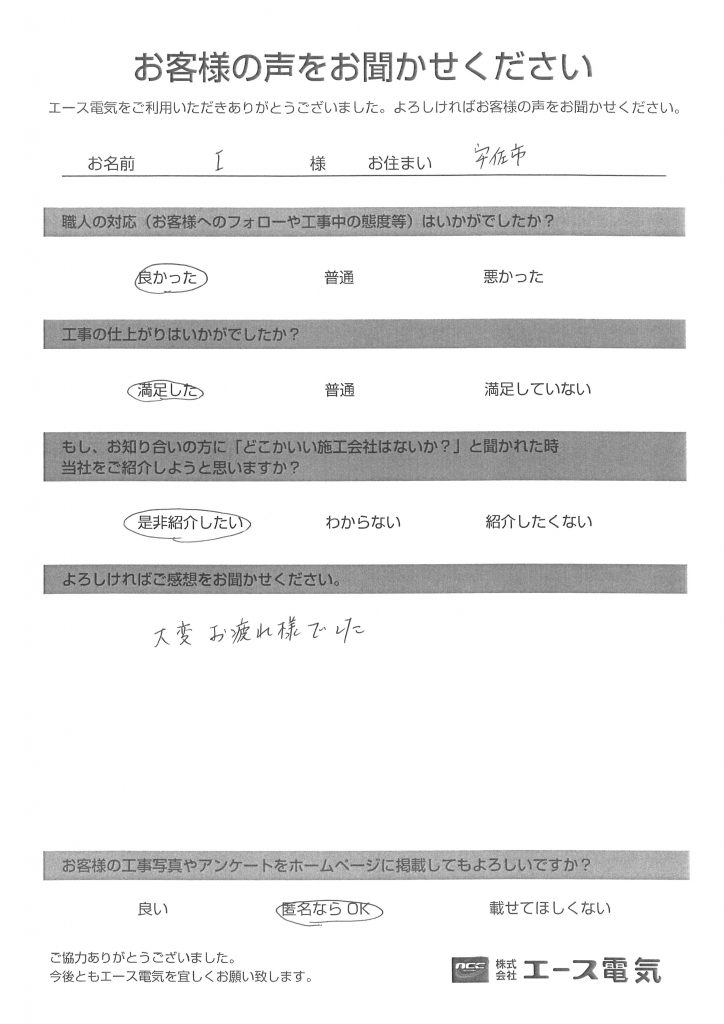 お客様の声をお聞かせください
エース電気をご利用いただきありがとうございました。よろしければお客様の声をお聞かせください。
お名前 I 様 お住まい 宇佐市
職人の対応（お客様へのフォローや工事中の態度等）はいかがでしたか？
良かった 普通 悪かった
工事の仕上がりはいかがでしたか？
満足した 普通 満足していない
もし、お知り合いの方に「どこかいい施工会社はないか？」と聞かれた時
当社をご紹介しようと思いますか？
是非紹介したい わからない 紹介したくない
よろしければご感想をお聞かせください。
大変 お疲れ様でした
お客様の工事写真やアンケートをホームページに掲載してもよろしいですか？
良い 匿名なら OK 載せてほしくない
ご協力ありがとうございました。
今後ともエース電気を宜しくお願い致します。
株式会社 エース電気